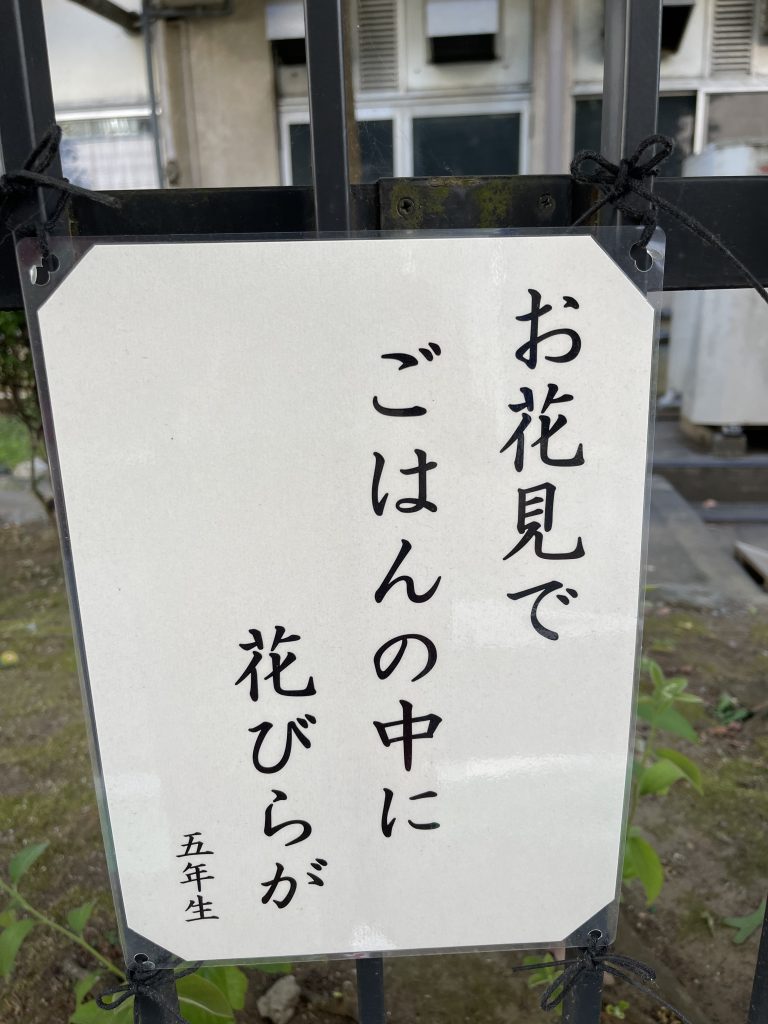 お花見で
ごはんの中に
花びらが
五年生